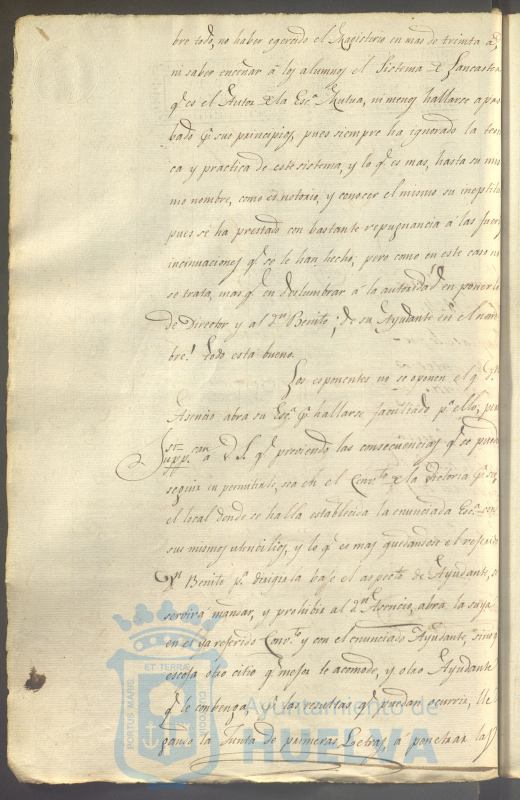 bre todo, no haber egercido el Magisterio en mas de treinta a
ni saber enceñar á los alumnos el Sistema de Lancaster
qe es el Autor de la Escª Mutua, ni menos hallarse apro
bado pr sus principios, pues siempre ha ignorado la teori
ca y practica de este sistema, y lo qe es mas, hasta su mis
mo nombre, como es notorio, y conocer el mismo su ineptitu
pues se ha prestado con bastante repugnancia á las
incinuaciones qe se le han hecho, pero como en este caso no
se trata, mas qe en deslumbrar á la autoridad en ponerlo
de Director y al dn Benito, de su Ayudante en el nom
bre, todo esta bueno.
Los esponentes no se oponen el qe dn
Asencio abra su Escª pr hallarse facultado pª ello, pero
Supp.can á V.S. qe previendo las consecuencias qe se pueda
seguir en permitirle, sea en el Convto de la Victoria pr ser
el local donde se halla establecida la enunciada Escª con
sus mismos utencilios, y lo qe es mas quedandose el referido
Dn Benito pª dirigirla bajo el aspecto de Ayudante, se
servirá mandar, y prohibir al dn Asencio, abra la suya
en el ya referido Convto y con el enunciado Ayudante, sino qe
escoja otro citio qe mejor le acomode, y otro Ayudante
qe le conbenga, pr las resultas qe puedan ocurrir, lle
gando la Junta de primeras Letras, á penetrar la
PORTUS MARIS
ET TERRÆ
CUSTODIA
Ayuntamiento de
HUELVA